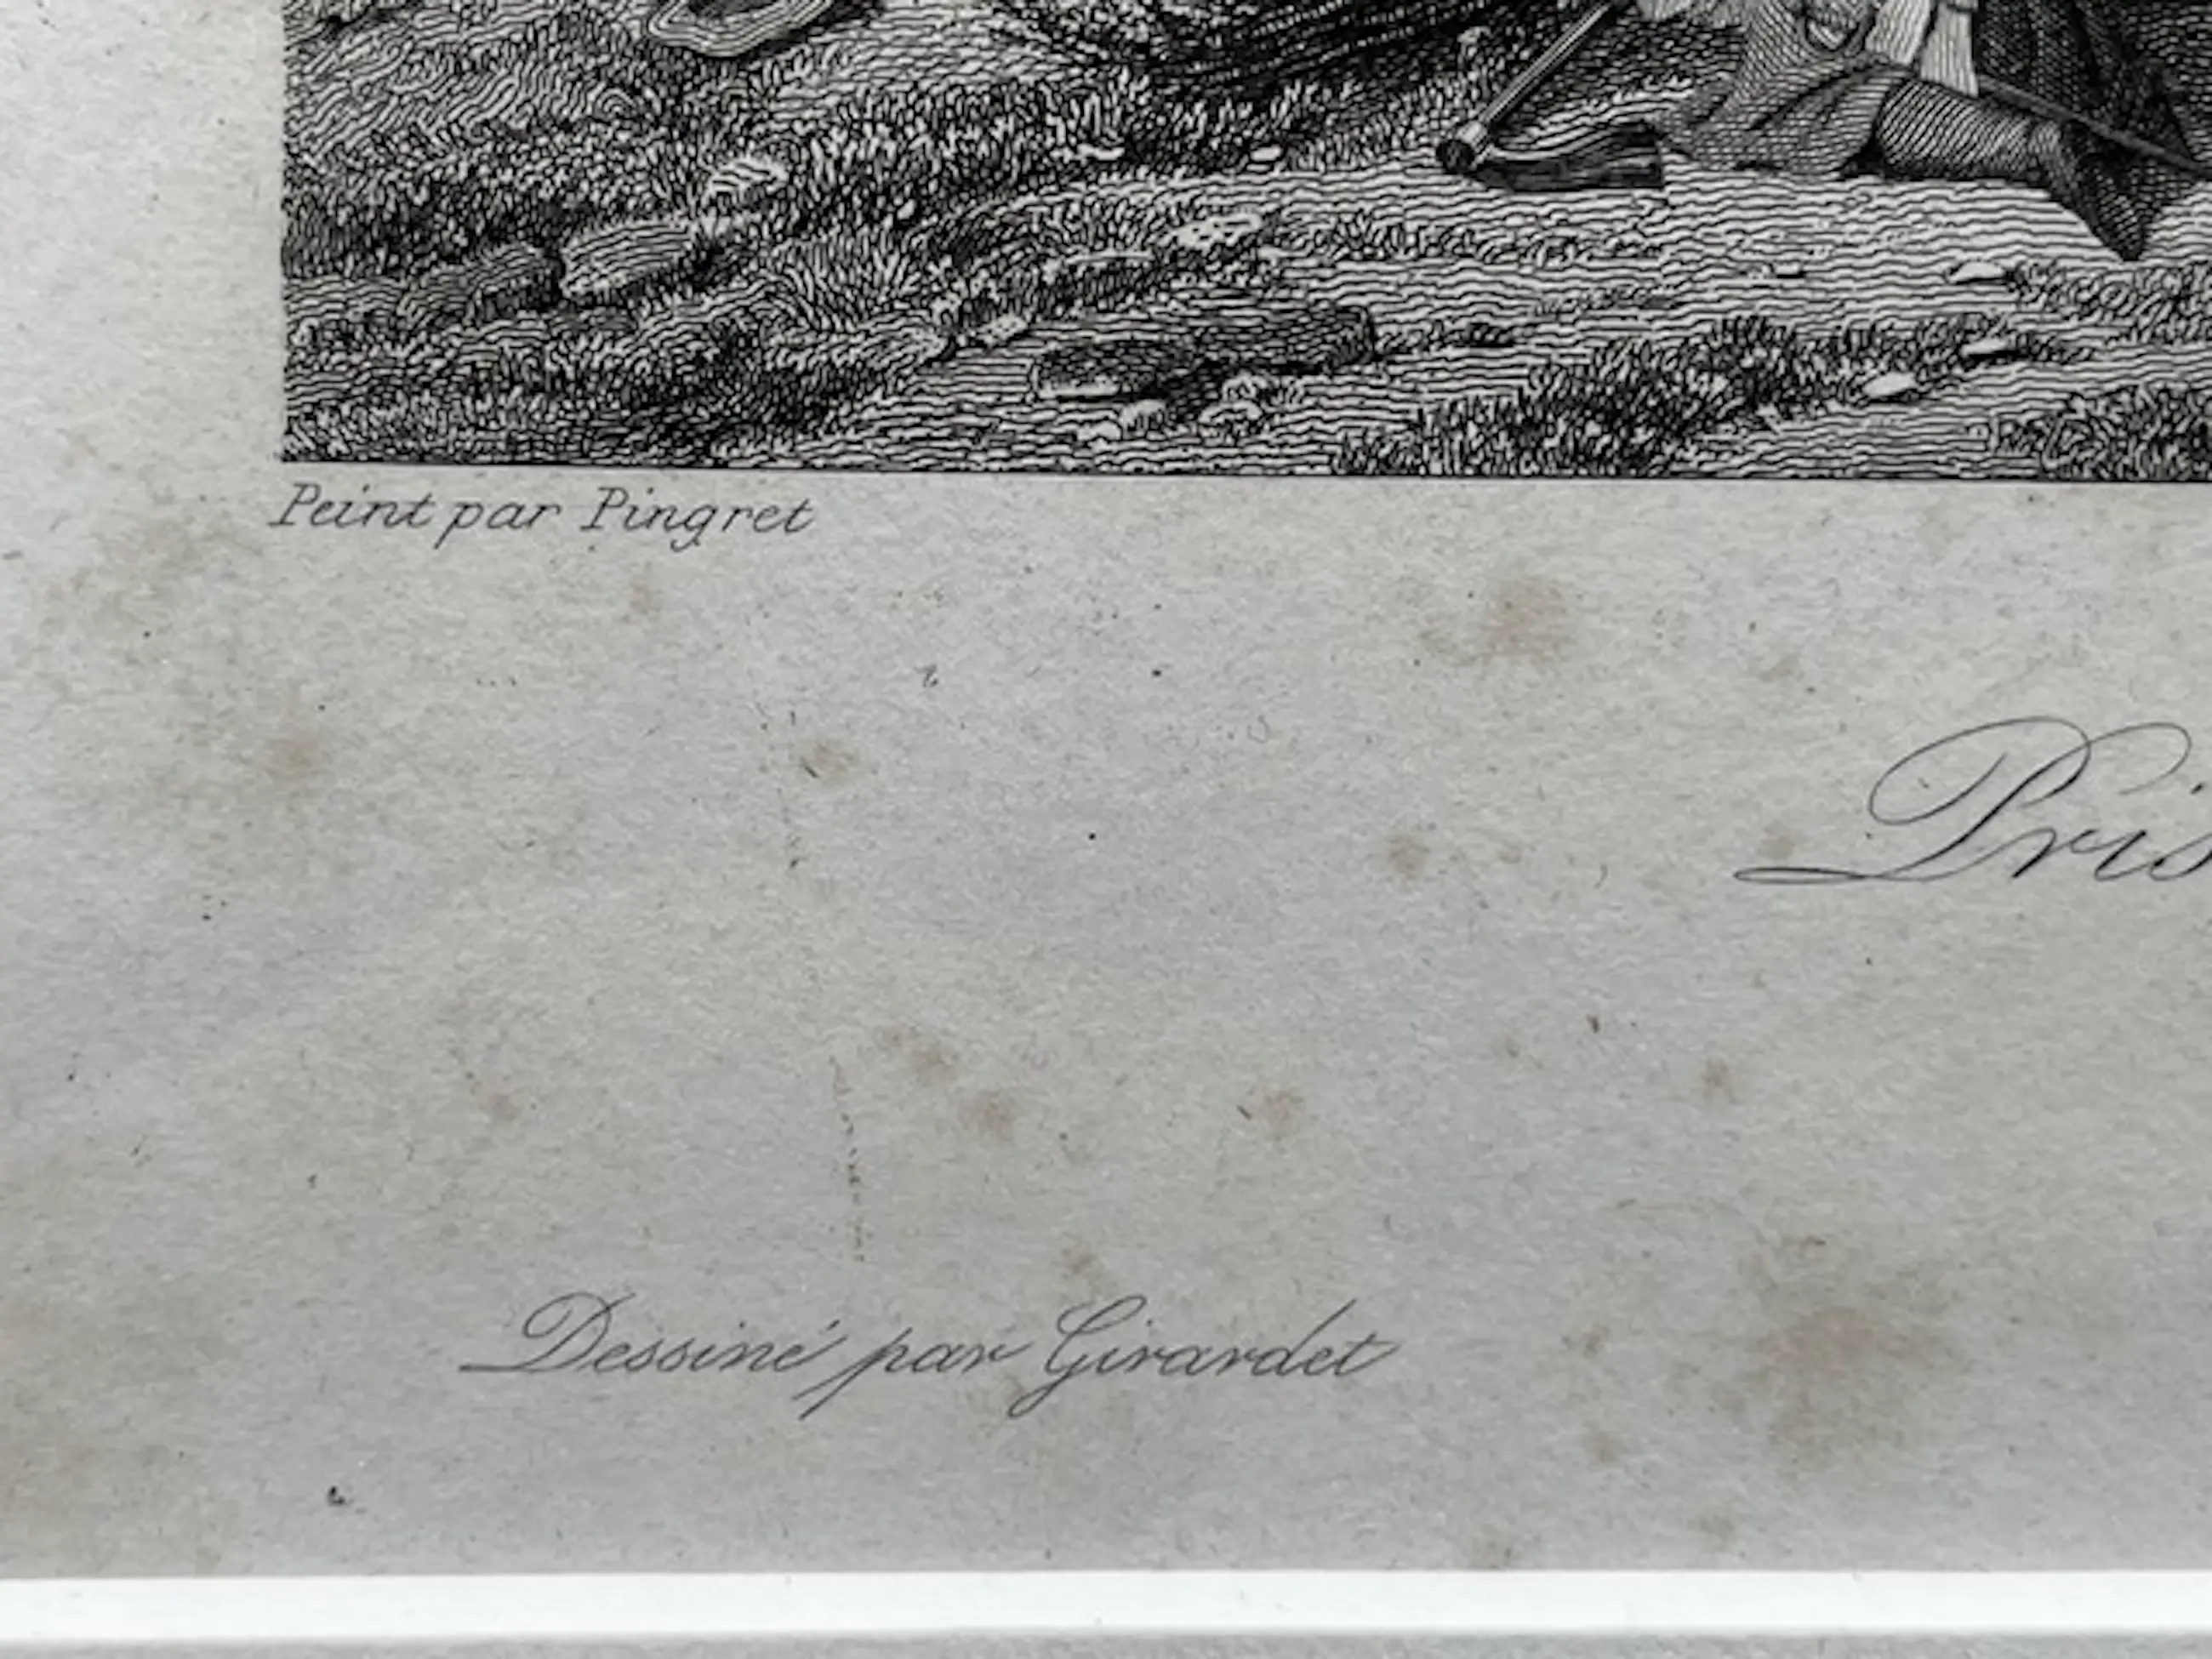 Peint par Pingret
Pris
Dessiné par Girardet